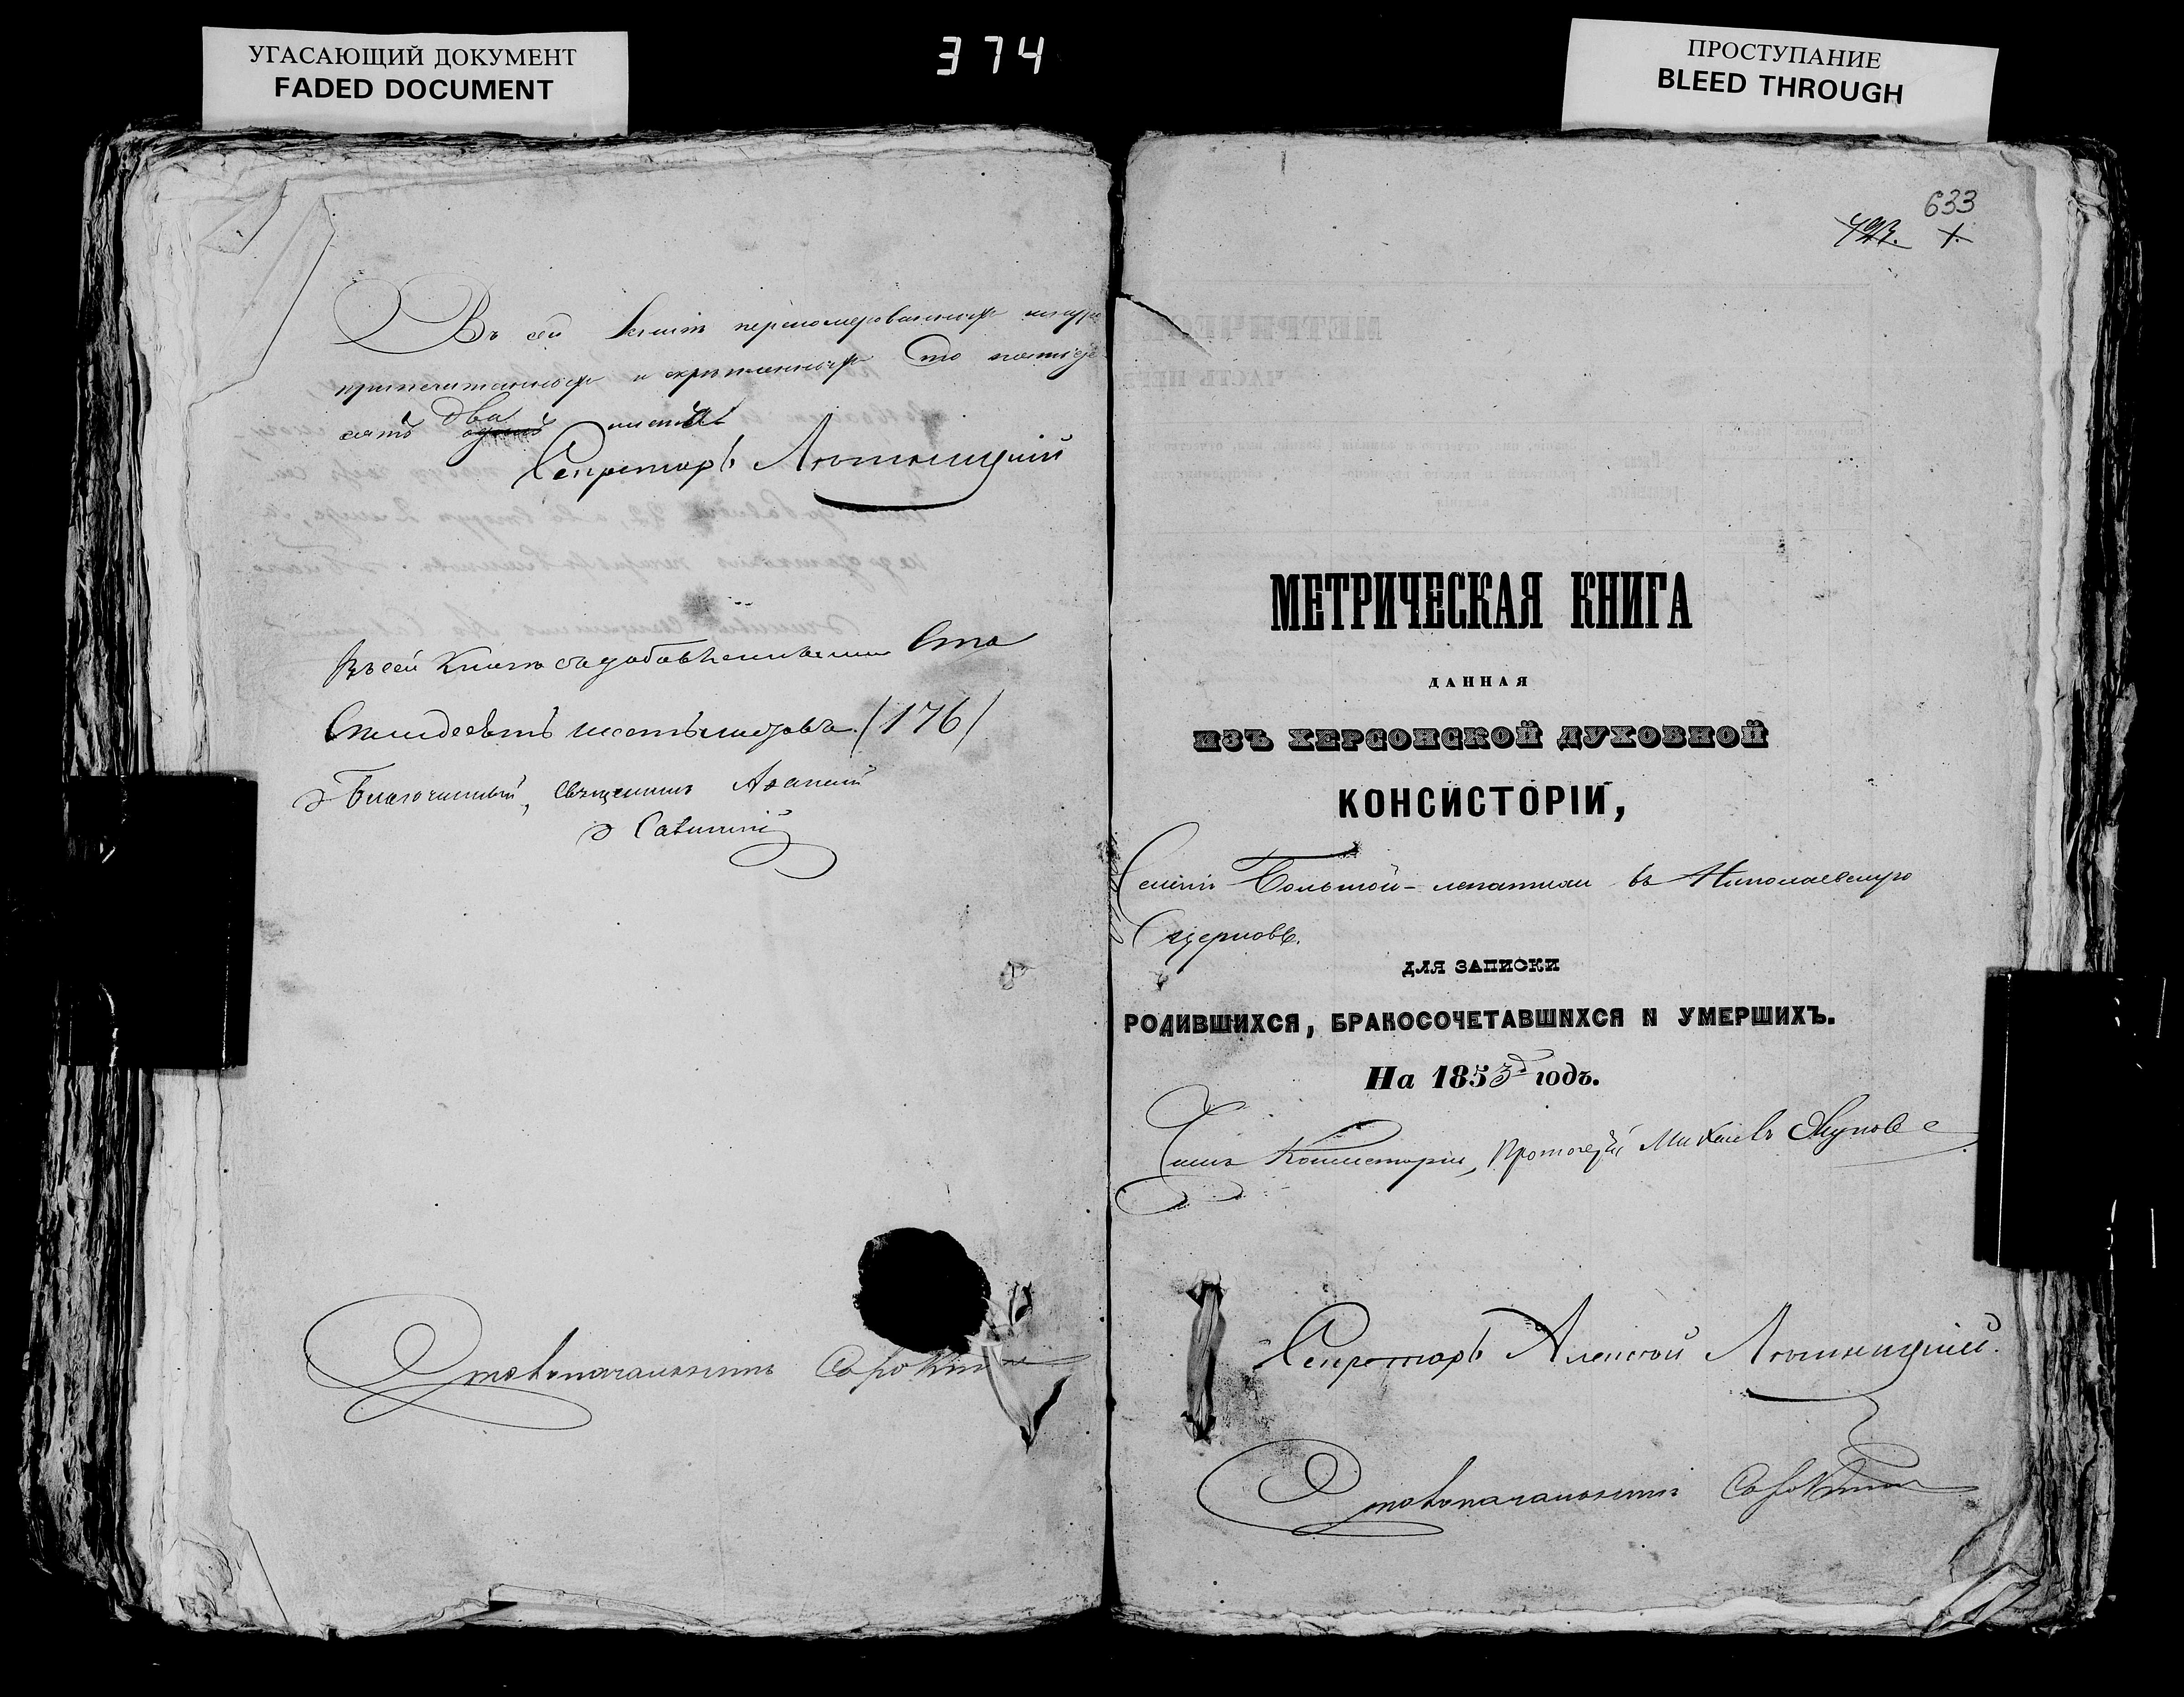 УГАСАЮЩИЙ ДОКУМЕНТ
FADED DOCUMENT
374
ПРОСТУПАНИЕ
BLEED THROUGH
Въ сей книгѣ перенумерованныхъ шнуро
припечатанныхъ и скрѣпленныхъ Сто пятьде
сятъ два одинъ листа
Секретарь Лютницкій
Въ сей Книгѣ съ добавленными Сто
Семдесятъ шесть листовъ (176)
Благочинный, Священникъ
Савицкій
Столоначальникъ Сорокин
633
1.
МЕТРИЧЕСКАЯ КНИГА
ДАННАЯ
ИЗЪ ХЕРСОНСКОЙ ДУХОВНОЙ
КОНСИСТОРІИ,
Большой- въ Николаевскую
Церковь.
ДЛЯ ЗАПИСКИ
РОДИВШИХСЯ, БРАКОСОЧЕТАВШИХСЯ И УМЕРШИХЪ.
На 1853й годъ.
Членъ Консисторіи, Протоіерей Михаилъ
Секретарь Алексей Лютницкій.
Столоначальникъ Сорокин